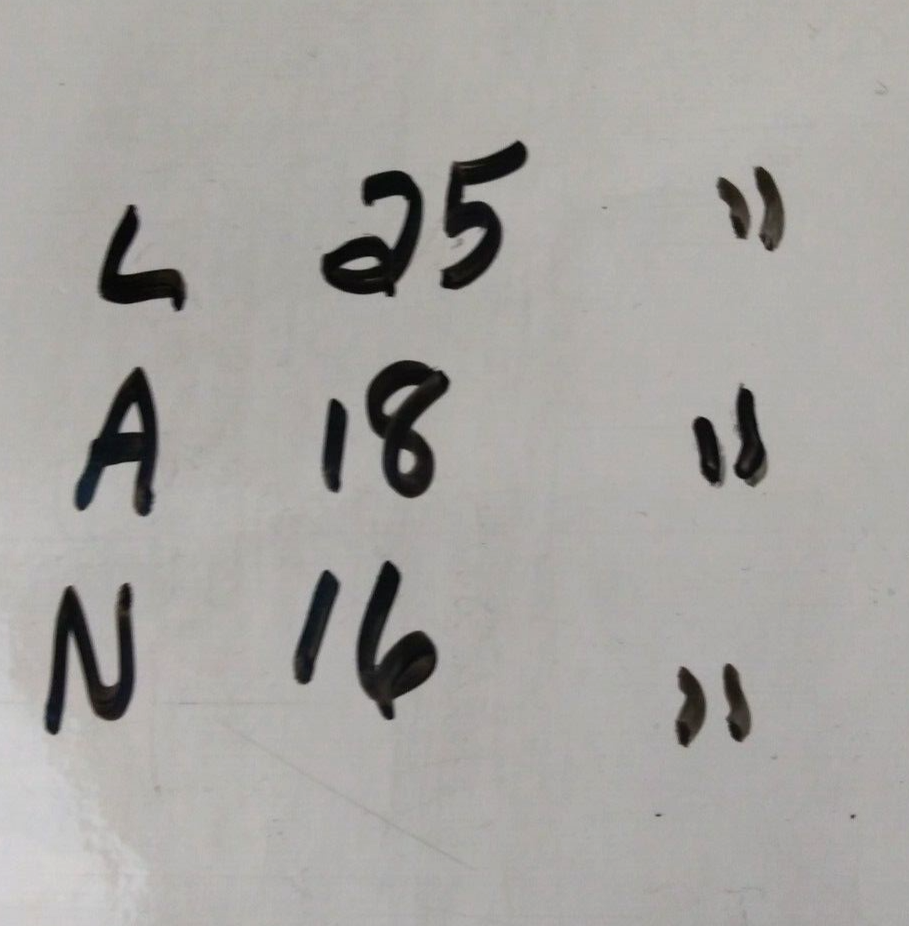 L 25 "
A 18 "
N 16 "